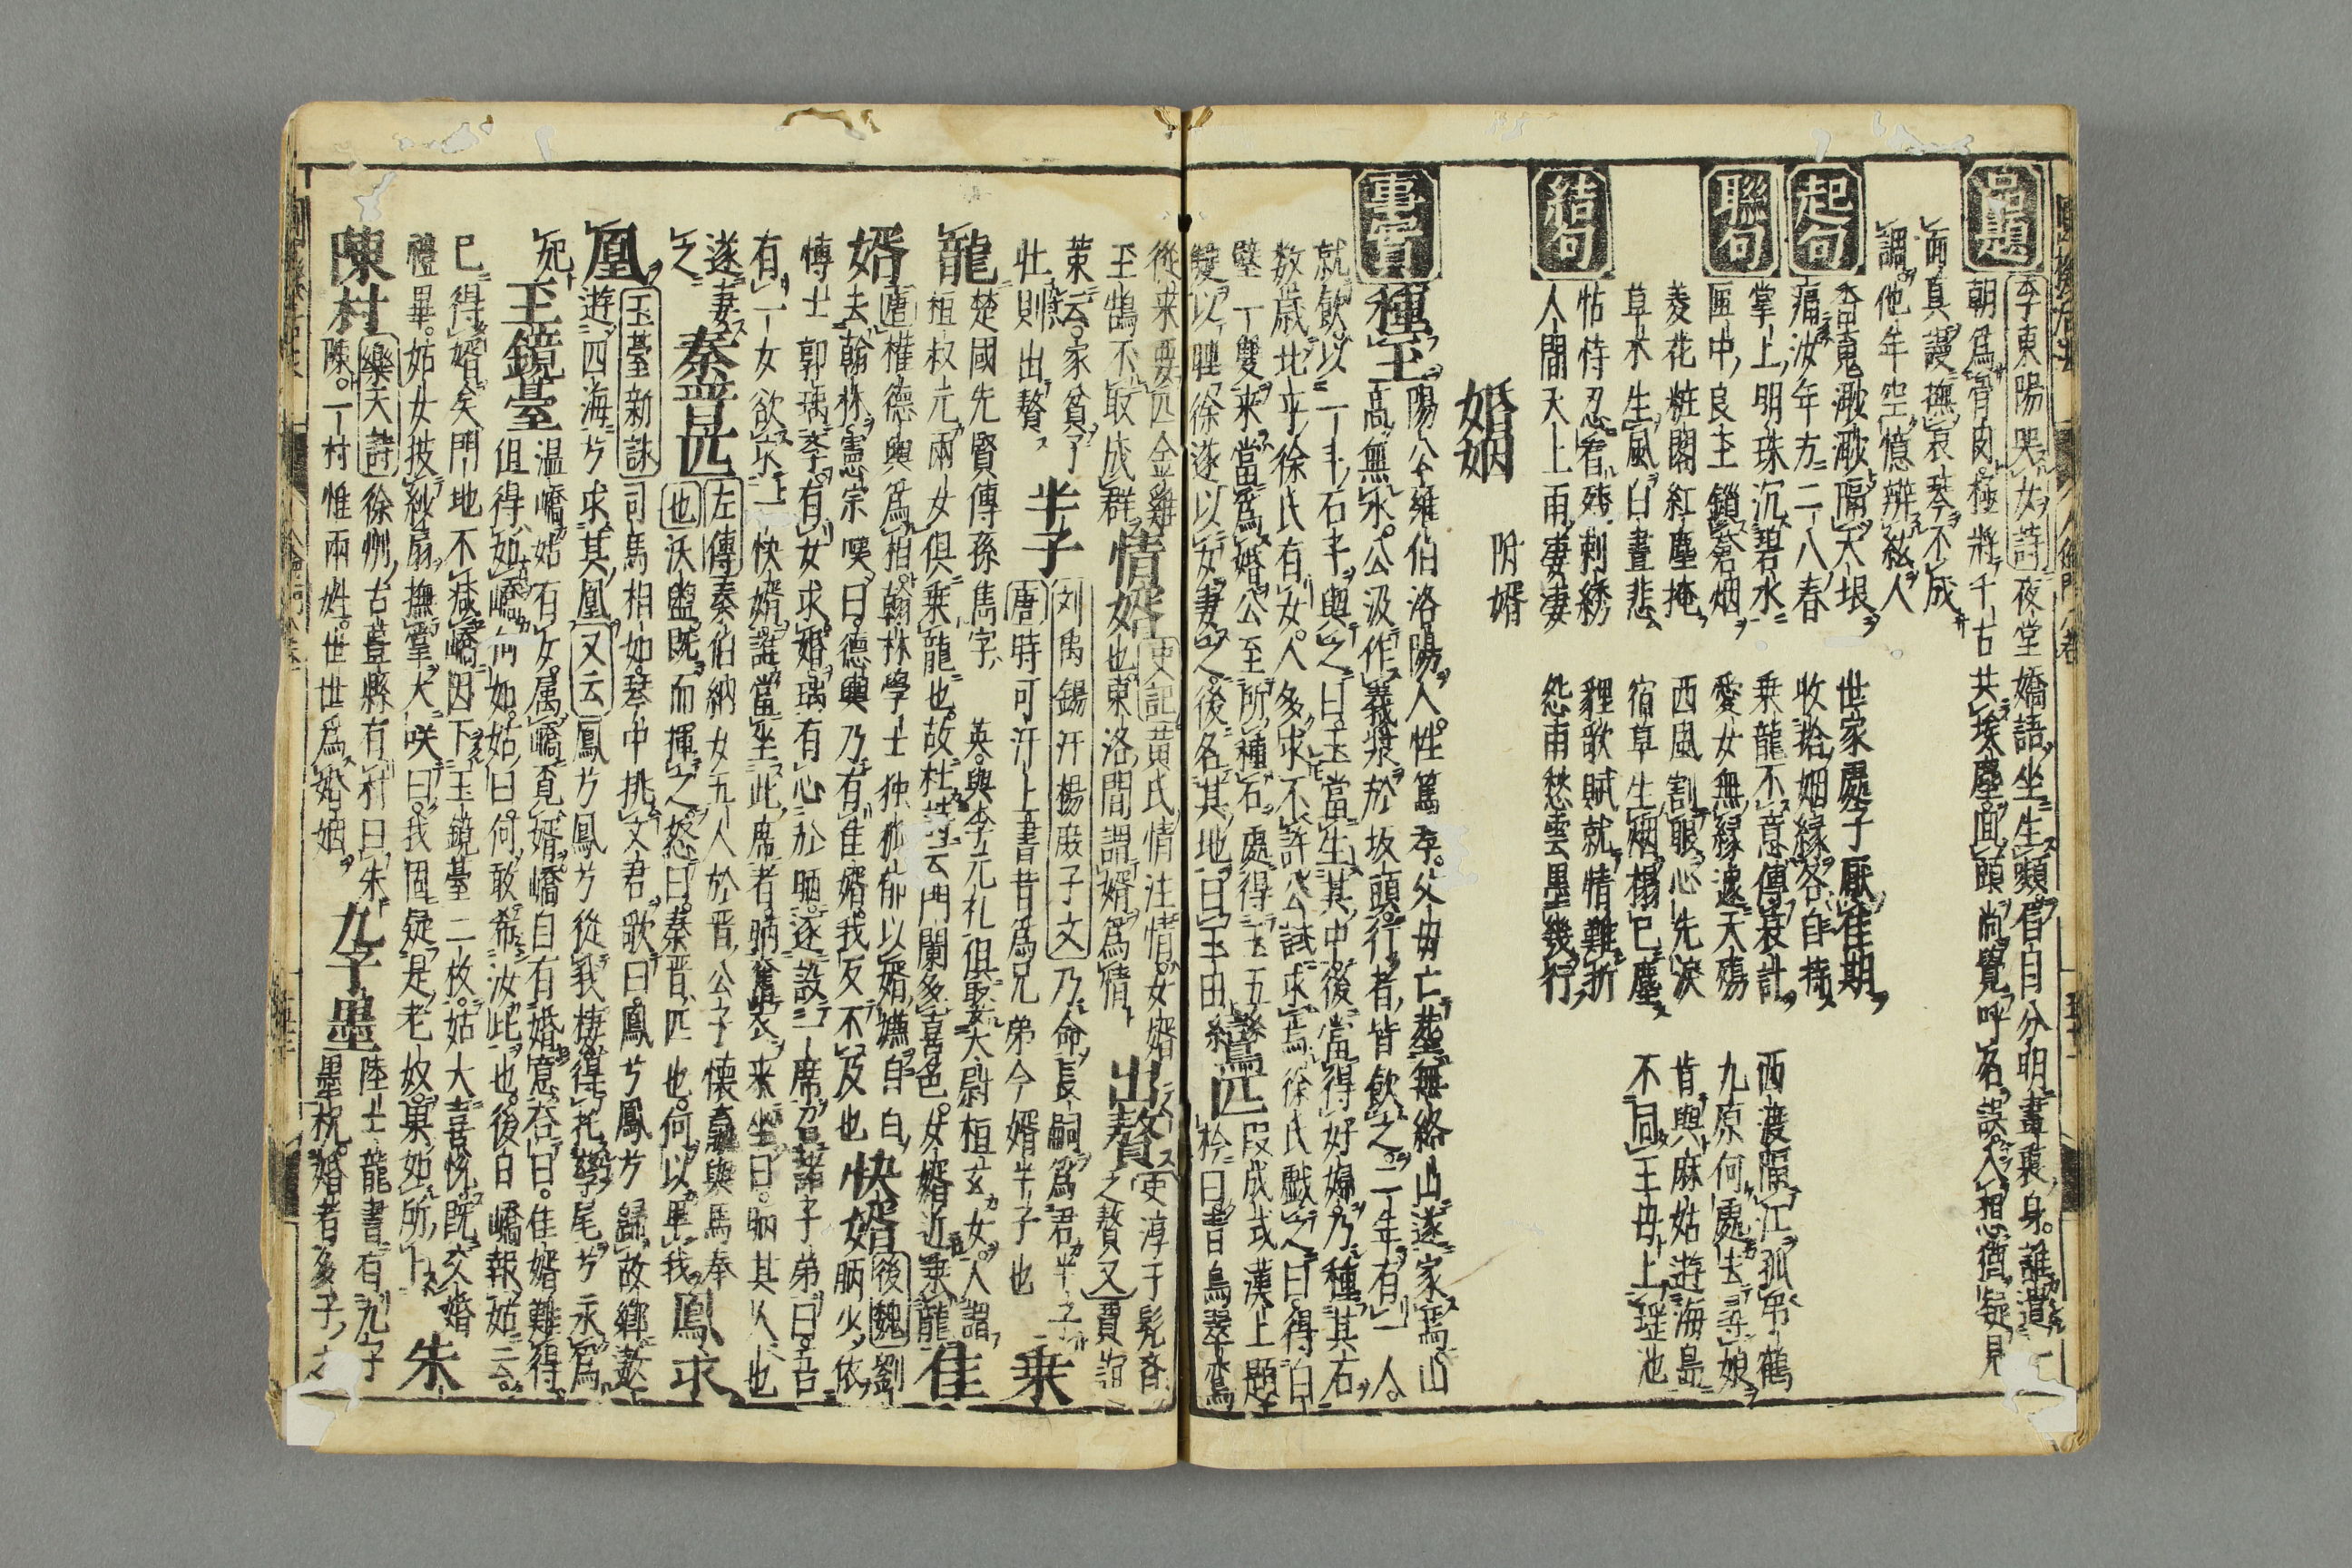 品題
李東陽哭女詩
夜堂嬌語坐生嚬眉目分明畫裏身誰遣一
朝爲骨肉極將千古共埃塵面頭尚覺呼名誤人想猶疑見
面真謾撫哀琴不成
調他年空憶辨絃人
起句
香魂漱漱隔天垠
世家處子厭佳期
痛汝年方二八春
收拾姻緣各自持
聯句
掌上明珠沉碧水
乗龍不意傳哀計
西渡隔江孤吊鶴
匣中良玉鎖蒼烟
愛女無緣遽天殤
九原何處去尋娘
菱花粧閣紅塵掩
西風割眼心先涙
肯與麻姑遊海島
草木生風白晝悲
宿草生烟榻已塵
不同王母上瑶池
結句
怙恃忍看残刺綉
貍歌賦就情難折
人間天上雨凄凄
怨雨愁雲墨幾行
婚姻
附婿
事實
種玉
陽公雍伯洛陽人性篤孝父母亡葬無終山遂家焉山
高無水公汲作義漿於坂頭行者皆飲之二年有一人
就飲以一斗石子與之曰玉當生其中後當得好婦乃種其石
数歳北平徐氏有女人多求不許公試求焉徐氏戯之曰得白
璧一雙來當爲婚公至所種石處得玉五
雙以聘徐遂以女妻之後名其地曰玉田
鴛匹
段成式漢上題
衿曰昔鳥翠鴛
從来要匹金雞
玉鵠不敢成群
情婿
史記黄氏情注情女婿
也東洛間謂婿爲情
出贅
史淳于髡齊
之贅又賈誼
策云家貧子
壮則出贅
半子
刘禹錫汗楊廠子文
乃命長嗣爲君半子
唐時可汗上書昔爲兄弟今婿半子也
乗
龍
楚國先賢傳孫雋字
英與李元礼俱娶大尉桓玄女人謂
桓叔元兩女俱乗龍也故杜詩云門闌多喜色女婿近乗龍
佳
婿
唐權德輿爲相翰林學士独孤郁以婿嫌自白
去翰林憲宗嘆曰德輿乃有佳婿我反不及也
快婿
後魏劉
昞少依
博士郭瑀李
有女求婚瑀有心於昞遂設一席召諸子弟曰吾
有一女欲求一
快婿誰當坐此席者昞奮衣来坐曰昞其人也
遂妻
之
秦晋匹
左傳秦伯納女五人於晋公子懷嬴與焉奉
也沃盥既而揮之怒曰秦晋匹也何以卑我
鳳求
凰
玉臺新詠
司馬相如琴中挑文君歌曰鳳兮鳳兮歸故鄉遨
遊四海兮求其凰
又云
鳳兮鳳兮從我棲得托孳尾兮永爲
妃
玉鏡臺
温嶠姑有女属嶠覓婿嶠自有婚意答曰佳婿難得
但得如嶠何如姑曰何敢希汝此也後日嶠報姑云
已得婿矣門地不减嶠因下玉鏡臺二枚姑大喜悦既交婚
禮畢姑女披紗扇撫掌大咲曰我固疑是老奴果如所卜
朱
陳村
樂天詩
徐州古豊縣有村曰朱
陳一村惟兩姓世世爲婚姻
九子墨
陸士龍書有九子
墨祝婚者多子之